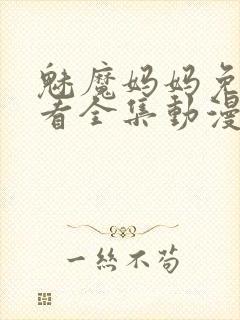 魅魔妈妈免
看全集動漫
一丝不苟